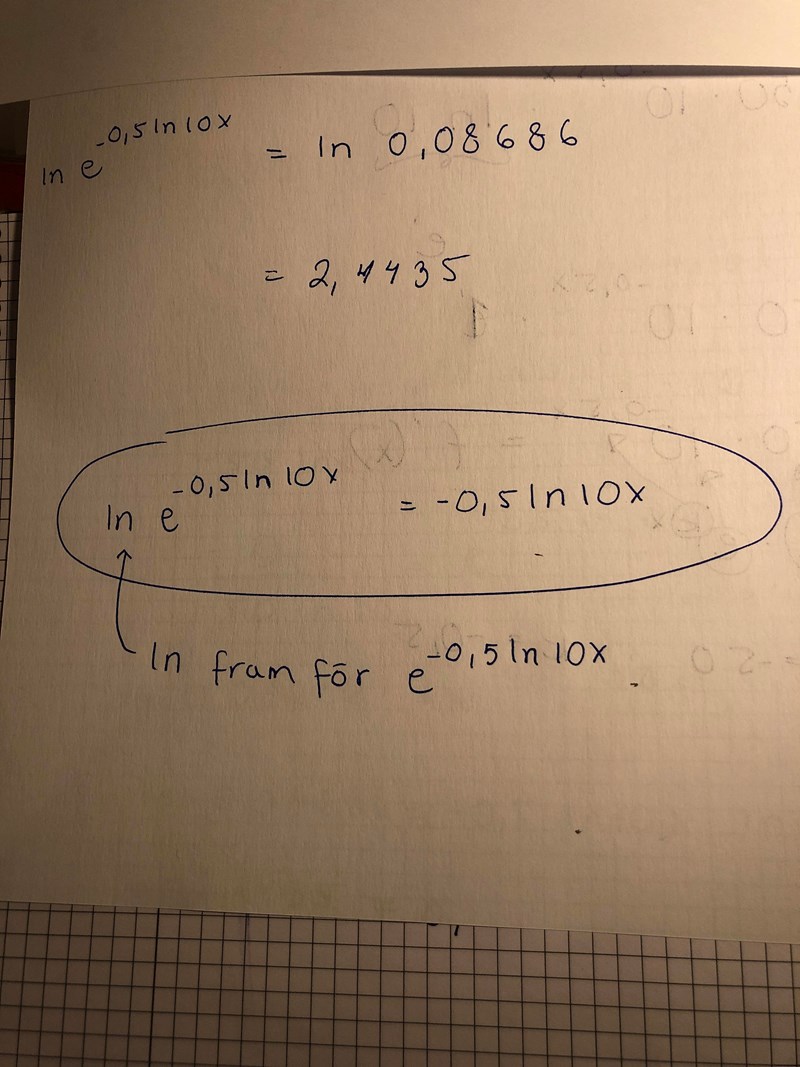 ln e^-0,5 ln 10x = ln 0,08686
= 2,4435
ln e^-0,5 ln 10x = -0,5 ln 10x
ln fram för e^-0,5 ln 10x .